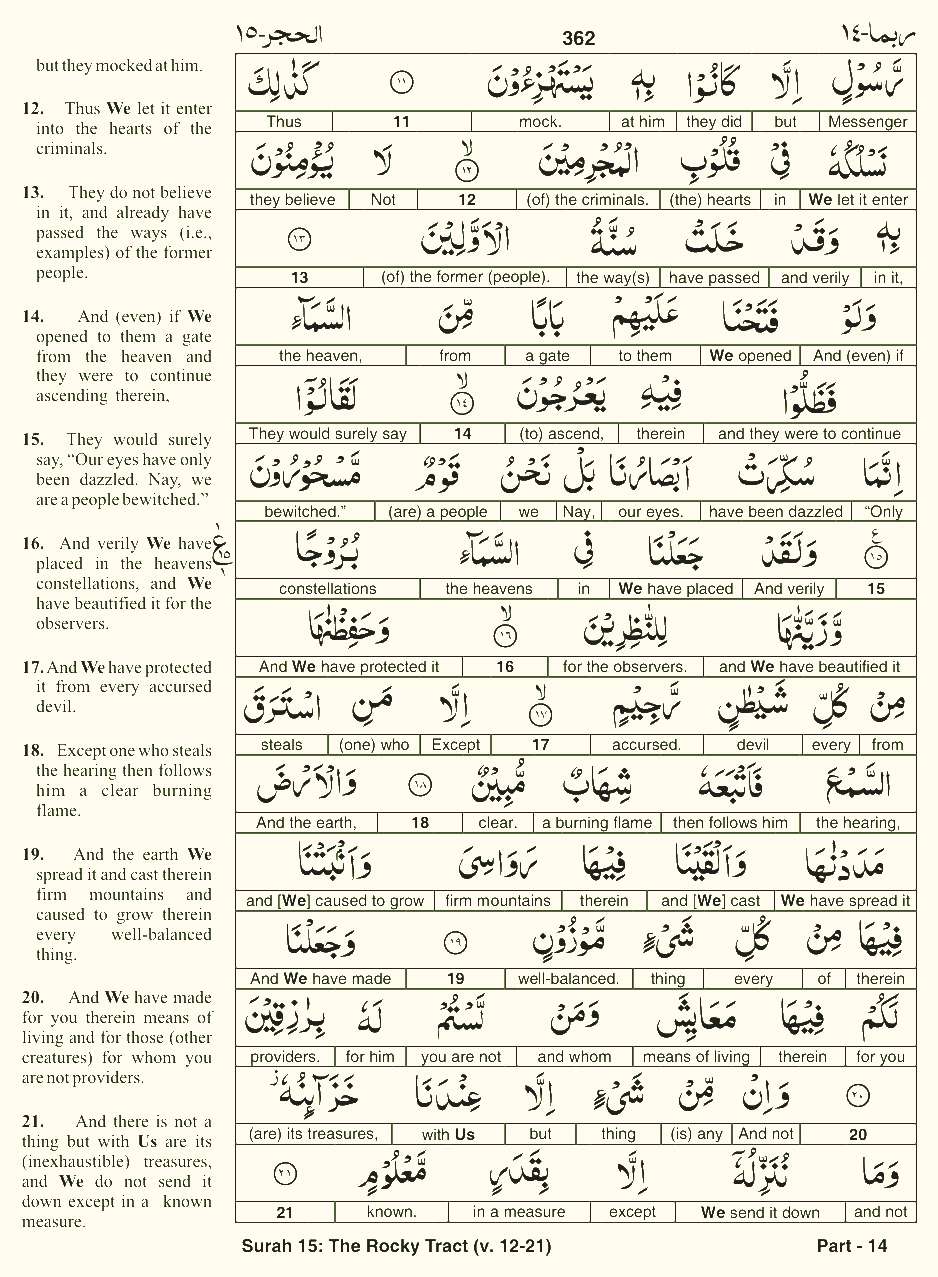 الحجر-١٥ 362 ربما-١٤
but they mocked at him.
12. Thus We let it enter
into the hearts of the
criminals.
13. They do not believe
in it, and already have
passed the ways (i.e.,
examples) of the former
people.
14. And (even) if We
opened to them a gate
from the heaven and
they were to continue
ascending therein,
15. They would surely
say, “Our eyes have only
been dazzled. Nay, we
are a people bewitched.”
16. And verily We have
placed in the heavens
constellations, and We
have beautified it for the
observers.
17. And We have protected
it from every accursed
devil.
18. Except one who steals
the hearing then follows
him a clear burning
flame.
19. And the earth We
spread it and cast therein
firm mountains and
caused to grow therein
every well-balanced
thing.
20. And We have made
for you therein means of
living and for those (other
creatures) for whom you
are not providers.
21. And there is not a
thing but with Us are its
(inexhaustible) treasures,
and We do not send it
down except in a known
measure.
رَّسُوْلٍ اِلَّا كَانُوْا بِهٖ يَسْتَهْزِءُوْنَ ١١ كَذٰلِكَ
Thus 11 mock. at him they did but Messenger
نَسْلُكُهٗ فِيْ قُلُوْبِ الْمُجْرِمِيْنَ ۙ ١٢ لَا يُؤْمِنُوْنَ
they believe Not 12 (of) the criminals. (the) hearts in We let it enter
بِهٖ وَقَدْ خَلَتْ سُنَّةُ الْاَوَّلِيْنَ ١٣
13 (of) the former (people). the way(s) have passed and verily in it,
وَلَوْ فَتَحْنَا عَلَيْهِمْ بَابًا مِّنَ السَّمَآءِ
the heaven, from a gate to them We opened And (even) if
فَظَلُّوْا فِيْهِ يَعْرُجُوْنَ ۙ ١٤ لَقَالُوْۤا
They would surely say 14 (to) ascend, therein and they were to continue
اِنَّمَا سُكِّرَتْ اَبْصَارُنَا بَلْ نَحْنُ قَوْمٌ مَّسْحُوْرُوْنَ
bewitched.” (are) a people we Nay, our eyes. have been dazzled “Only
١٥ ع وَلَقَدْ جَعَلْنَا فِى السَّمَآءِ بُرُوْجًا ١ ع ١٥ ١
constellations the heavens in We have placed And verily 15
وَّزَيَّنّٰهَا لِلنّٰظِرِيْنَ ۙ ١٦ وَحَفِظْنٰهَا
And We have protected it 16 for the observers. and We have beautified it
مِنْ كُلِّ شَيْطٰنٍ رَّجِيْمٍ ۙ ١٧ اِلَّا مَنِ اسْتَرَقَ
steals (one) who Except 17 accursed. devil every from
السَّمْعَ فَاَتْبَعَهٗ شِهَابٌ مُّبِيْنٌ ١٨ وَالْاَرْضَ
And the earth, 18 clear. a burning flame then follows him the hearing,
مَدَدْنٰهَا وَاَلْقَيْنَا فِيْهَا رَوَاسِىَ وَاَنْۢبَتْنَا
and [We] caused to grow firm mountains therein and [We] cast We have spread it
فِيْهَا مِنْ كُلِّ شَىْءٍ مَّوْزُوْنٍ ١٩ وَجَعَلْنَا
And We have made 19 well-balanced. thing every of therein
لَكُمْ فِيْهَا مَعَايِشَ وَمَنْ لَّسْتُمْ لَهٗ بِرٰزِقِيْنَ
providers. for him you are not and whom means of living therein for you
٢٠ وَاِنْ مِّنْ شَىْءٍ اِلَّا عِنْدَنَا خَزَآئِنُهٗ ز
(are) its treasures, with Us but thing (is) any And not 20
وَمَا نُنَزِّلُهٗۤ اِلَّا بِقَدَرٍ مَّعْلُوْمٍ ٢١
21 known. in a measure except We send it down and not
Surah 15: The Rocky Tract (v. 12-21) Part - 14